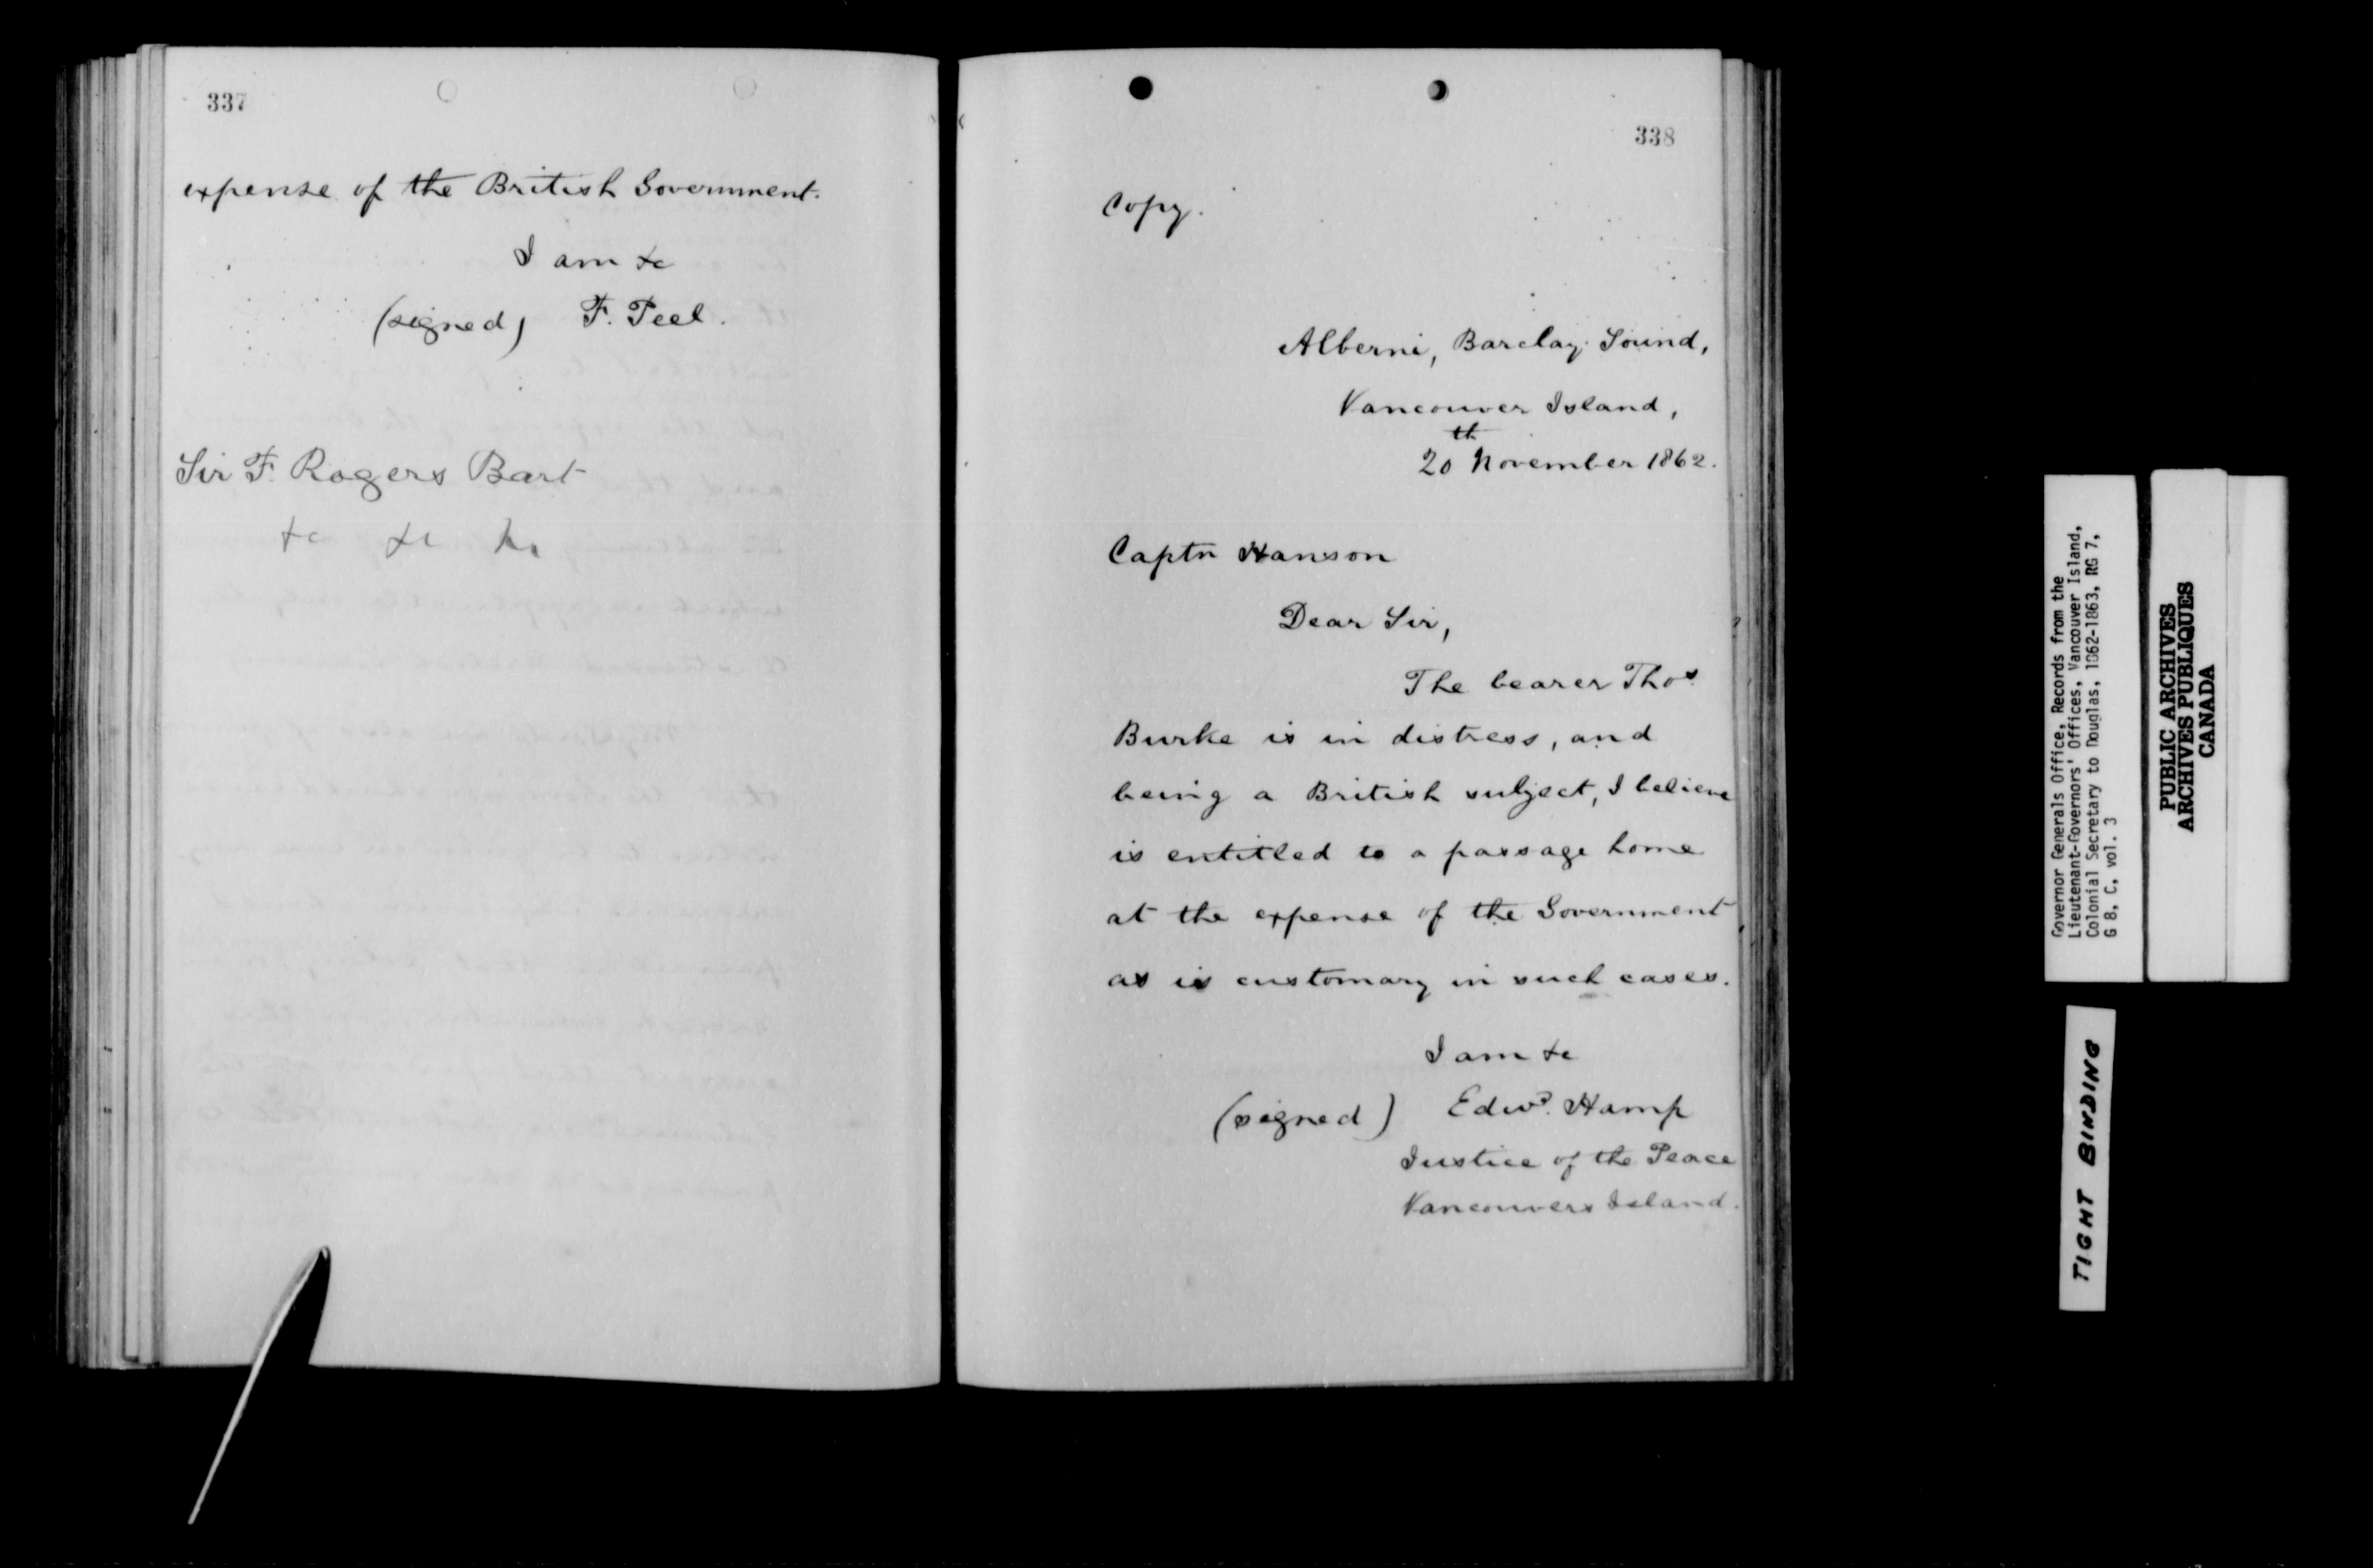 337
expense of the British Government.
I am &c
(signed) F. Peel.
Sir F. Rogers Bart
&c &c &c
338
Copy.
Alberni, Barclay Sound,
Vancouver Island,
20th November 1862.
Captn Hanson
Dear Sir,
The bearer Thos
Burke is in distress, and
being a British subject, I believe
is entitled to a passage home
at the expense of the Government
as is customary in such cases.
I am &c
(signed) Edwd. Hamp
Justice of the Peace
Vancouvers Island.
Governor Generals Office, Records from the
Lieutenant-Governors' Offices, Vancouver Island,
Colonial Secretary to Douglas, 1862-1863, RG 7,
G 8, C, vol. 3
PUBLIC ARCHIVES
ARCHIVES PUBLIQUES
CANADA
TIGHT BINDING